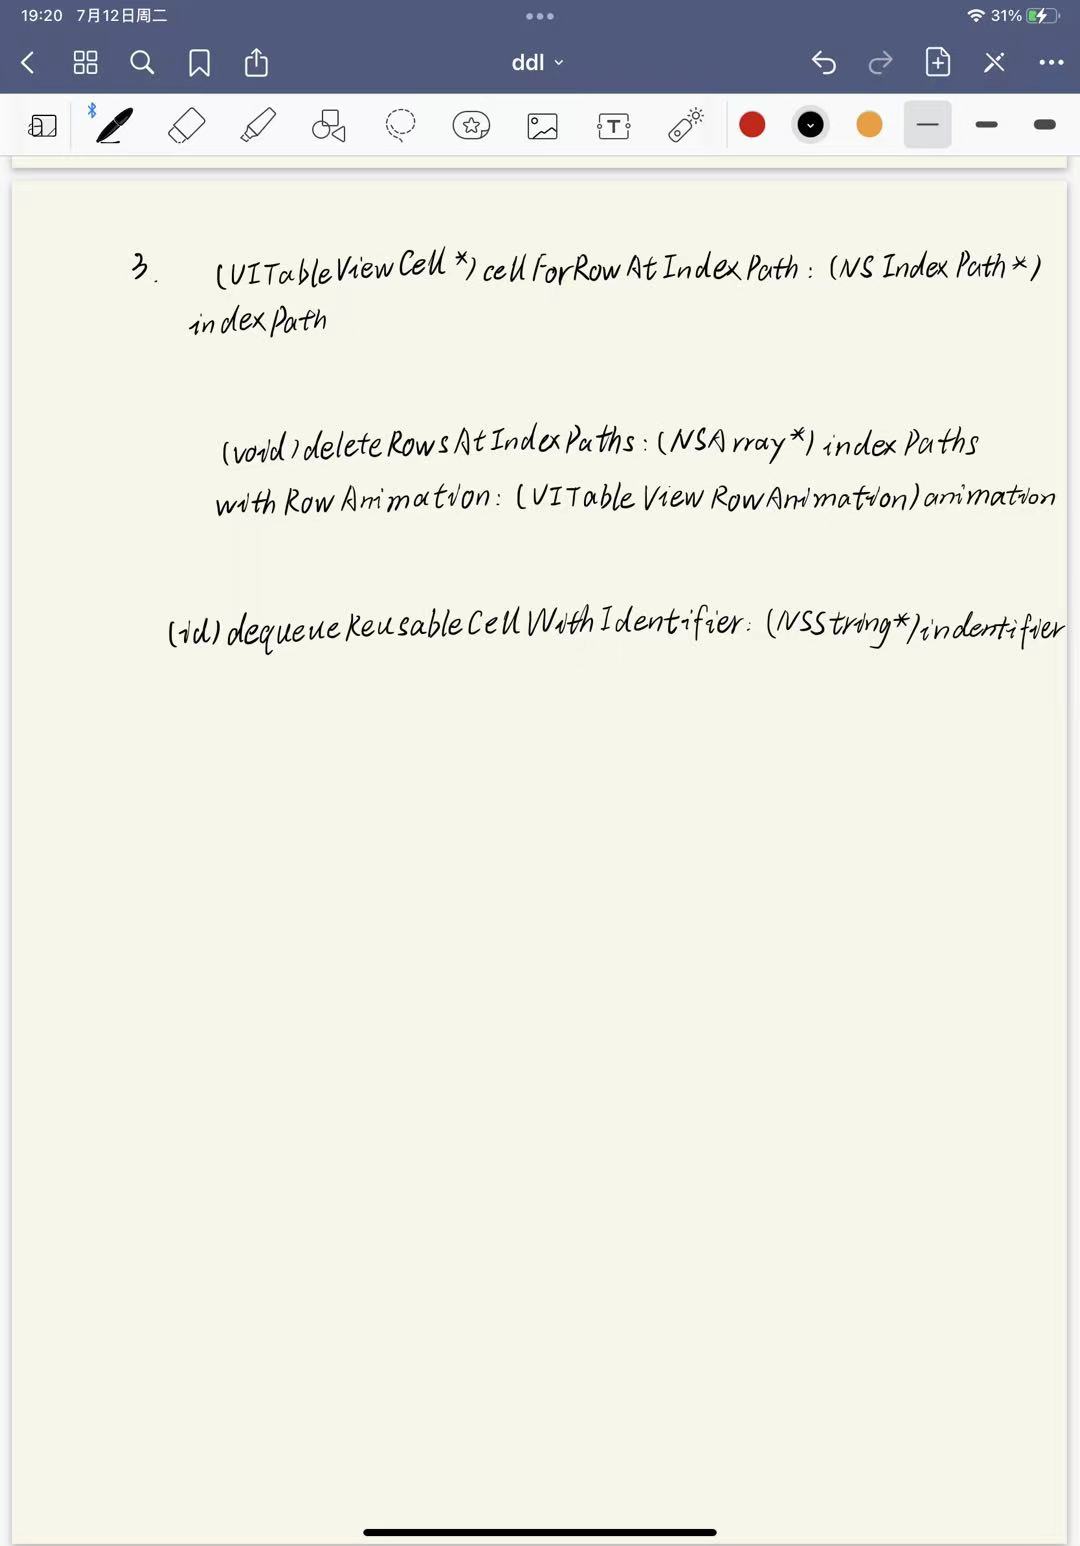 19:20 7月12日周二
31%
ddl
T
3. (UITableViewCell *) cellForRowAtIndexPath : (NSIndexPath *)
indexPath
(void) deleteRowsAtIndexPaths : (NSArray *) indexPaths
withRowAnimation : (UITableViewRowAnimation) animation
(id) dequeueReusableCellWithIdentifier : (NSString *) indentifier